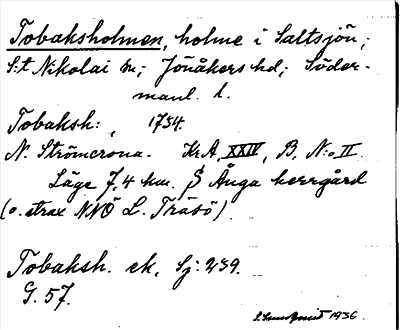 Tobaksholmen, holme i Saltsjön;
S:t Nikolai sn; Jönåkers hd; Söder-
manl. l.
Tobaksh:, 1734.
N. Strömcrona. KrA, XXIV, B, N:o II.
Läge 7,4 km. S Ånga herrgård
(o. strax NNÖ L. Träsö).
Tobaksh. ek. Sj: 239.
G. 57.
1936